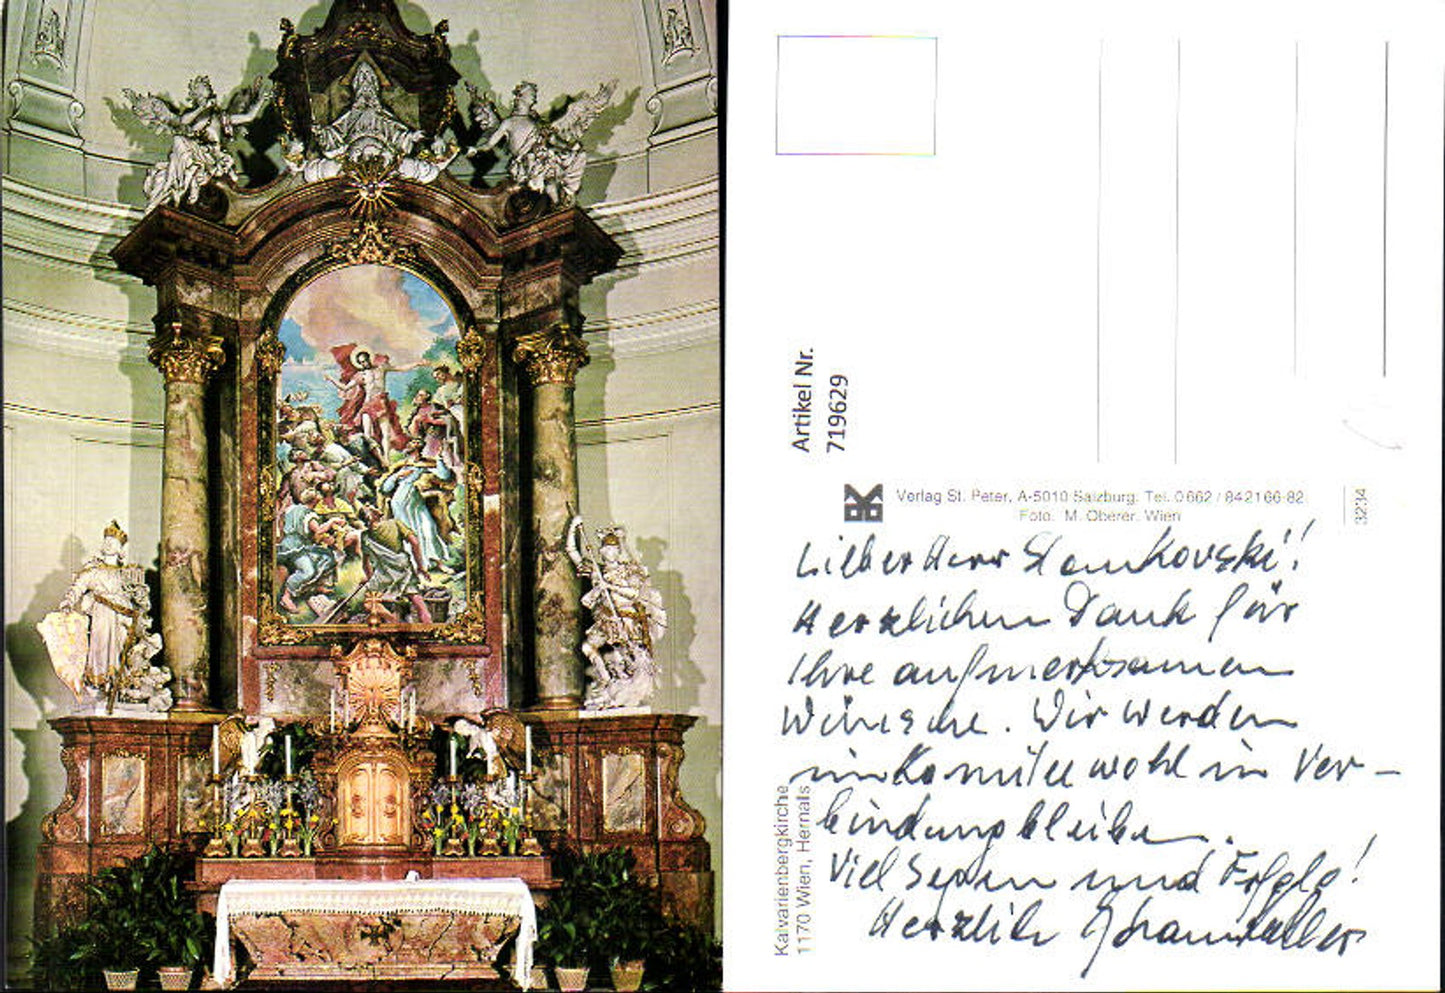 Artikel Nr.
719629
Verlag St. Peter, A-5010 Salzburg. Tel. 0662 / 842166-82
Foto: M. Oberer, Wien
3234
Kalvarienbergkirche
1170 Wien, Hernals
Lieber Herr Stankovski!
Herzlichen Dank für
Ihre aufmerksamen
Wünsche. Wir werden
im Komitee wohl in Ver-
bindung bleiben.
Viel Segen und Erfolg!
Herzlich